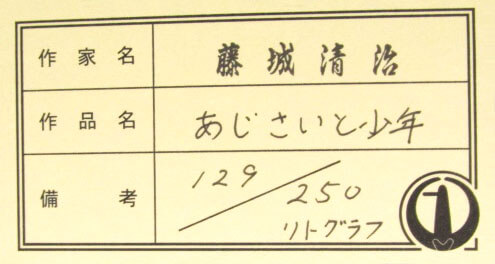 作家名 藤城清治
作品名 あじさいと少年
備考 129/250
リトグラフ